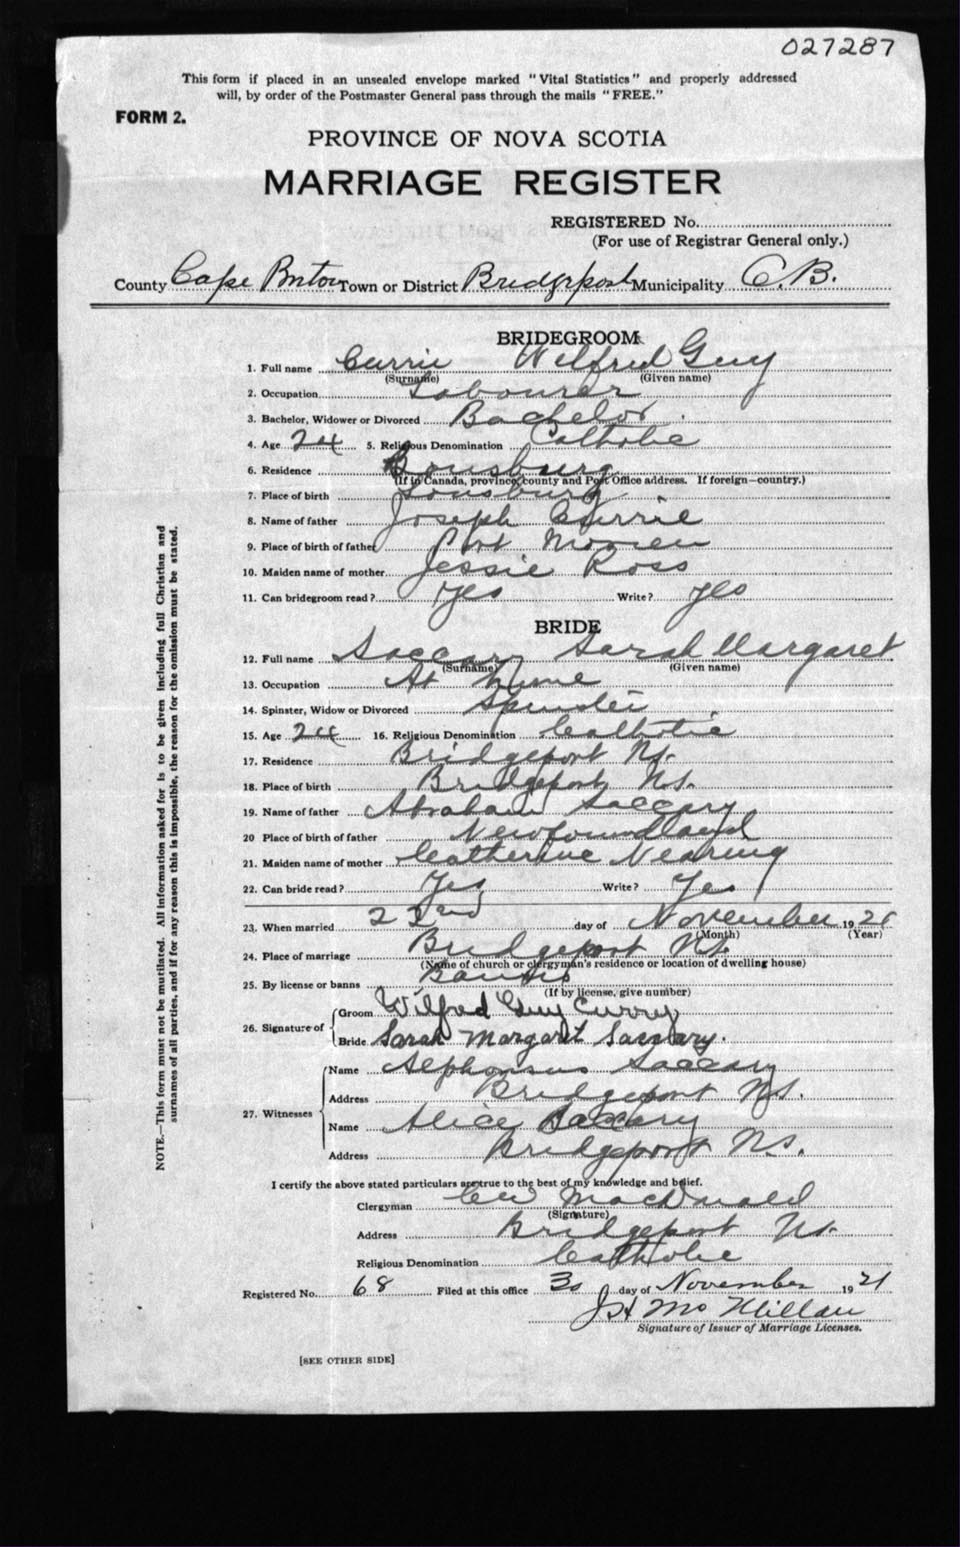 027287
This form if placed in an unsealed envelope marked "Vital Statistics" and properly addressed
will, by order of the Postmaster General pass through the mails "FREE."
FORM 2.
PROVINCE OF NOVA SCOTIA
MARRIAGE REGISTER
REGISTERED No.
(For use of Registrar General only.)
County Cape Breton Town or District Bridgeport Municipality C.B.
BRIDEGROOM
1. Full name Currie Wilfred Guy
(Surname) (Given name)
2. Occupation Labourer
3. Bachelor, Widower or Divorced Bachelor
4. Age 24 5. Religious Denomination Catholic
6. Residence
(If in Canada, province, county and Post Office address. If foreign—country.)
7. Place of birth
8. Name of father Joseph Currie
9. Place of birth of father Port Morien
10. Maiden name of mother Jessie Ross
11. Can bridegroom read? Yes Write? Yes
BRIDE
12. Full name Saccary Sarah Margaret
(Surname) (Given name)
13. Occupation At home
14. Spinster, Widow or Divorced Spinster
15. Age 24 16. Religious Denomination Catholic
17. Residence Bridgeport N.S.
18. Place of birth Bridgeport N.S.
19. Name of father Abraham Saccary
20 Place of birth of father Newfoundland
21. Maiden name of mother Catherine Nearing
22. Can bride read? Yes Write? Yes
23. When married 22nd day of November 1921
(Month) (Year)
24. Place of marriage Bridgeport N.S.
(Name of church or clergyman's residence or location of dwelling house)
25. By license or banns Banns
(If by license, give number)
26. Signature of
Groom Wilfred Guy Currey
Bride Sarah Margaret Saccary.
27. Witnesses
Name Alphonsus Saccary
Address Bridgeport N.S.
Name Alice Saccary
Address Bridgeport N.S.
I certify the above stated particulars are true to the best of my knowledge and belief.
Clergyman MacDonald
(Signature)
Address Bridgeport N.S.
Religious Denomination Catholic
Registered No. 68 Filed at this office 30 day of November 1921
McMillan
Signature of Issuer of Marriage Licenses.
[SEE OTHER SIDE]
NOTE.—This form must not be mutilated. All information asked for is to be given including full Christian and
surnames of all parties, and if for any reason this is impossible, the reason for the omission must be stated.